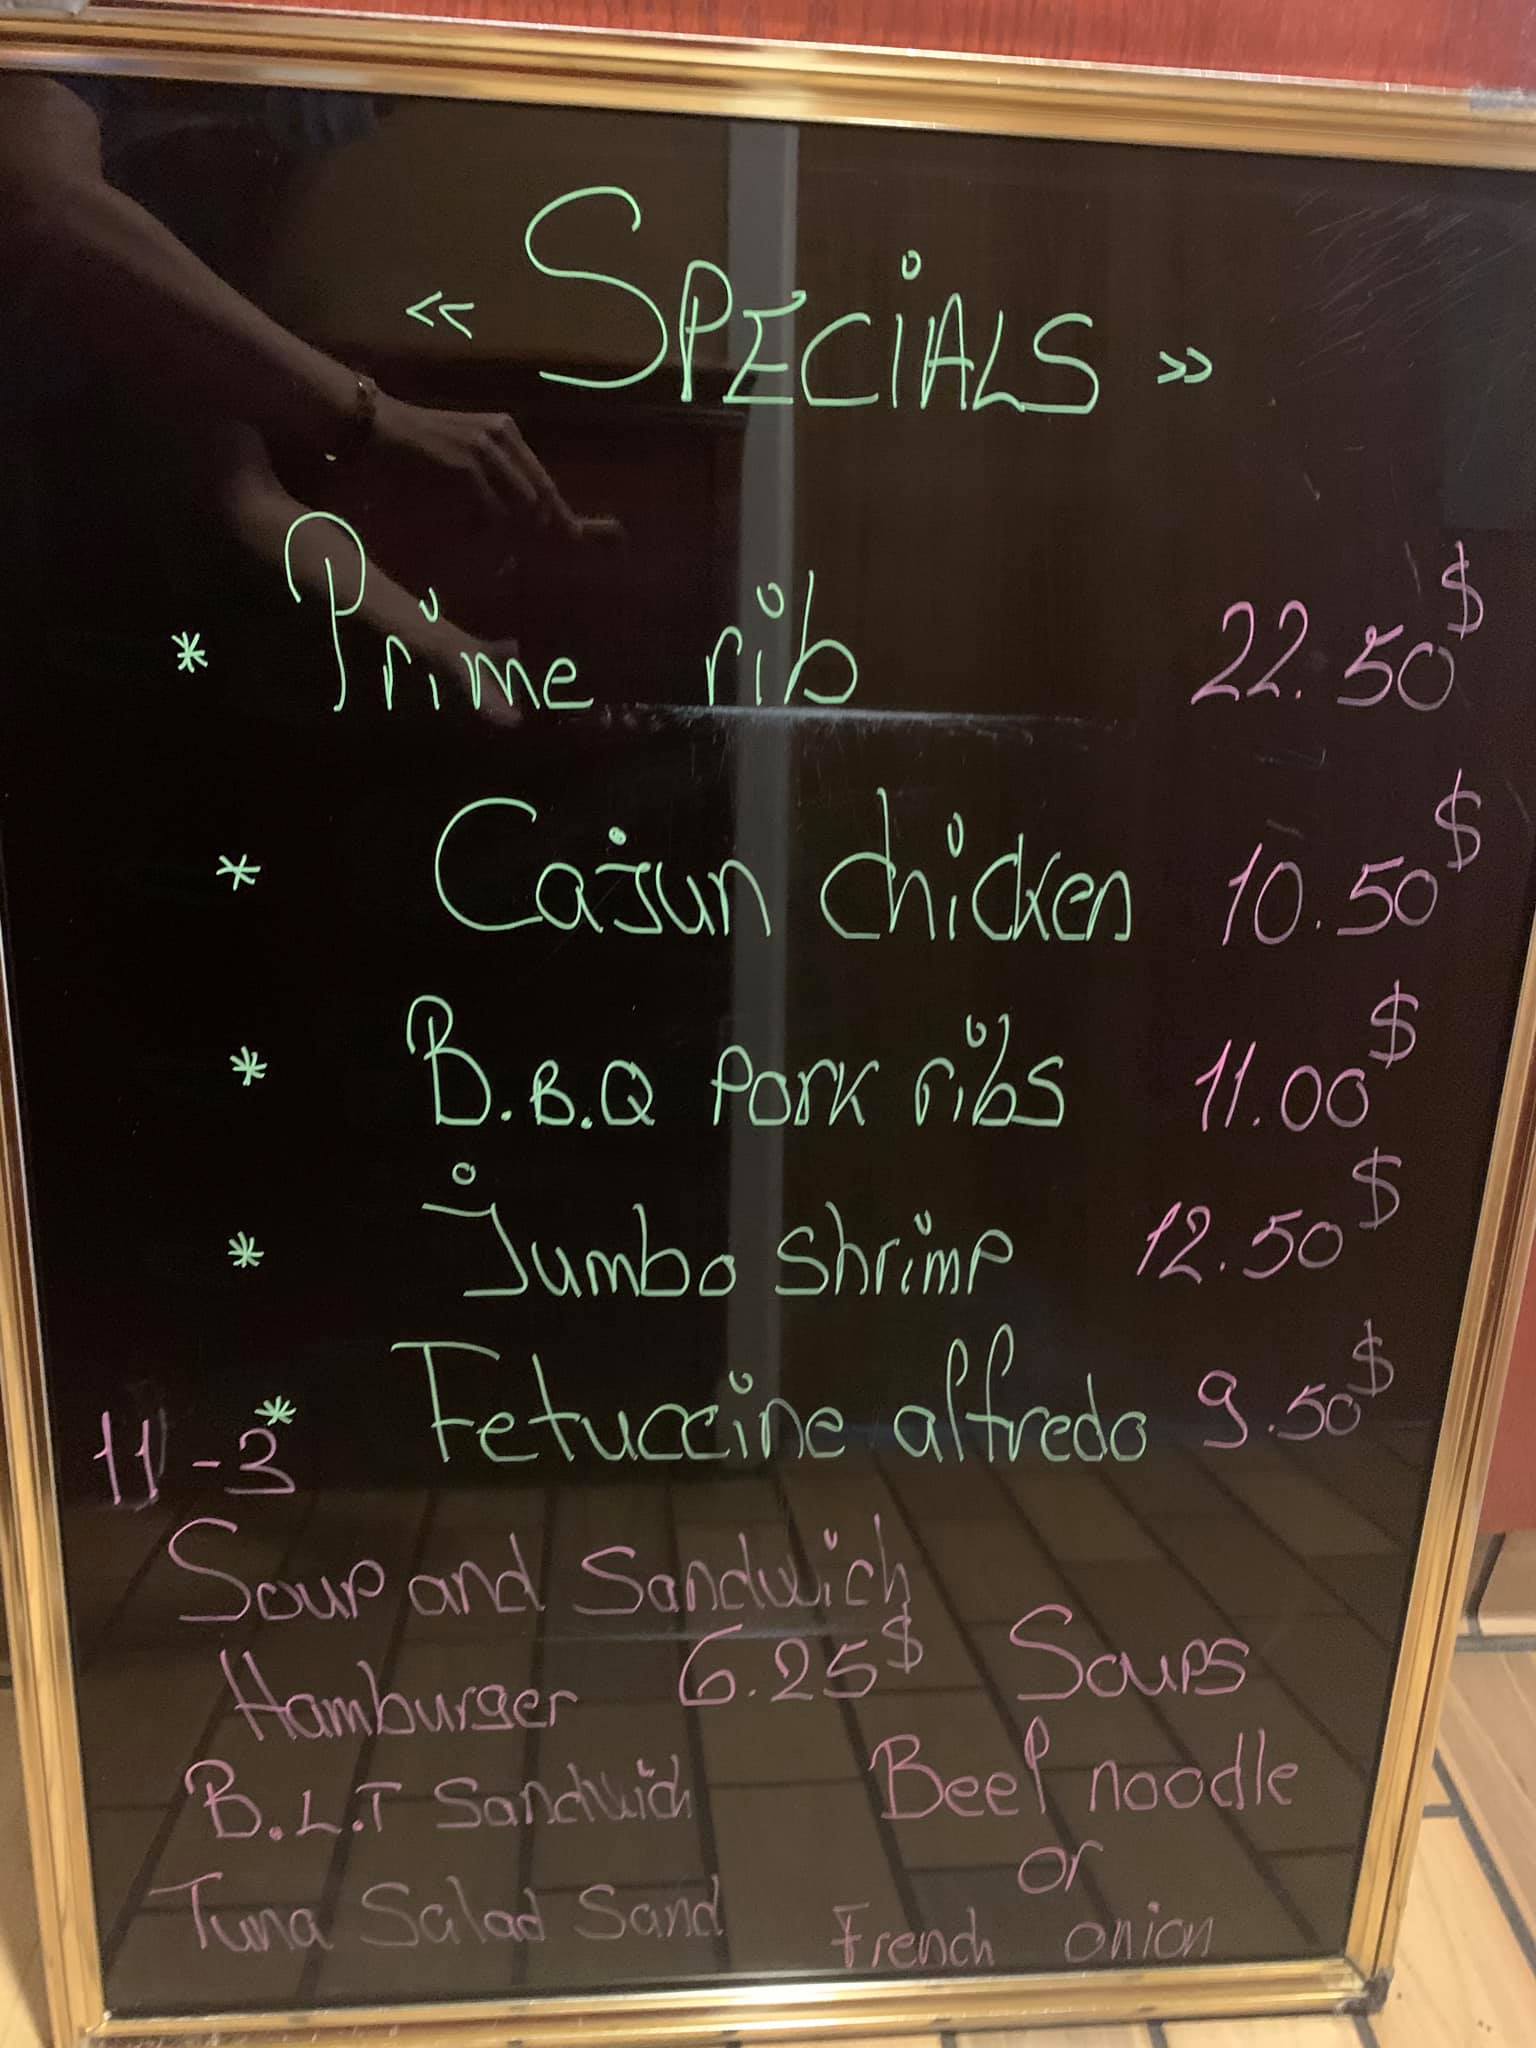 « SPECiALS »
* Prime rib 22.50$
* Cajun chicken 10.50$
* B.B.Q Pork ribs 11.00$
* Jumbo shrimp 12.50$
* Fetuccine alfredo 9.50$
11-3
Soup and Sandwich
6.25$
Hamburger
B.L.T Sandwich
Tuna Salad Sand
Soups
Beef noodle
or
French onion